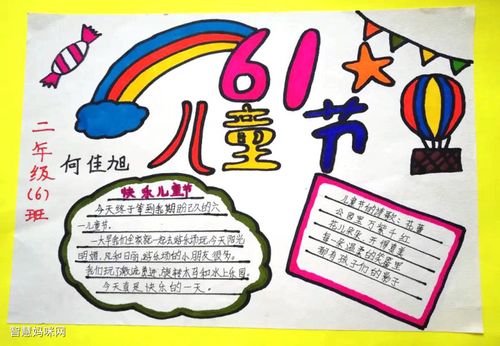 61
儿童节
二年级(6)班
何佳旭
快乐儿童节
今天终于等到
的六
一儿童节。
一大早我们全家就一起去游乐场玩今天阳光
明媚,风和日丽游乐场的小朋友很多。
我们玩了激流勇进,旋转木马和水上乐园。
今天真是快乐的一天。
儿童节的赞歌:花蕾
公园里万紫千红
花儿朵朵 开得贵重
每一朵温柔的花蕾里
都有孩子们的影子
智慧妈咪网